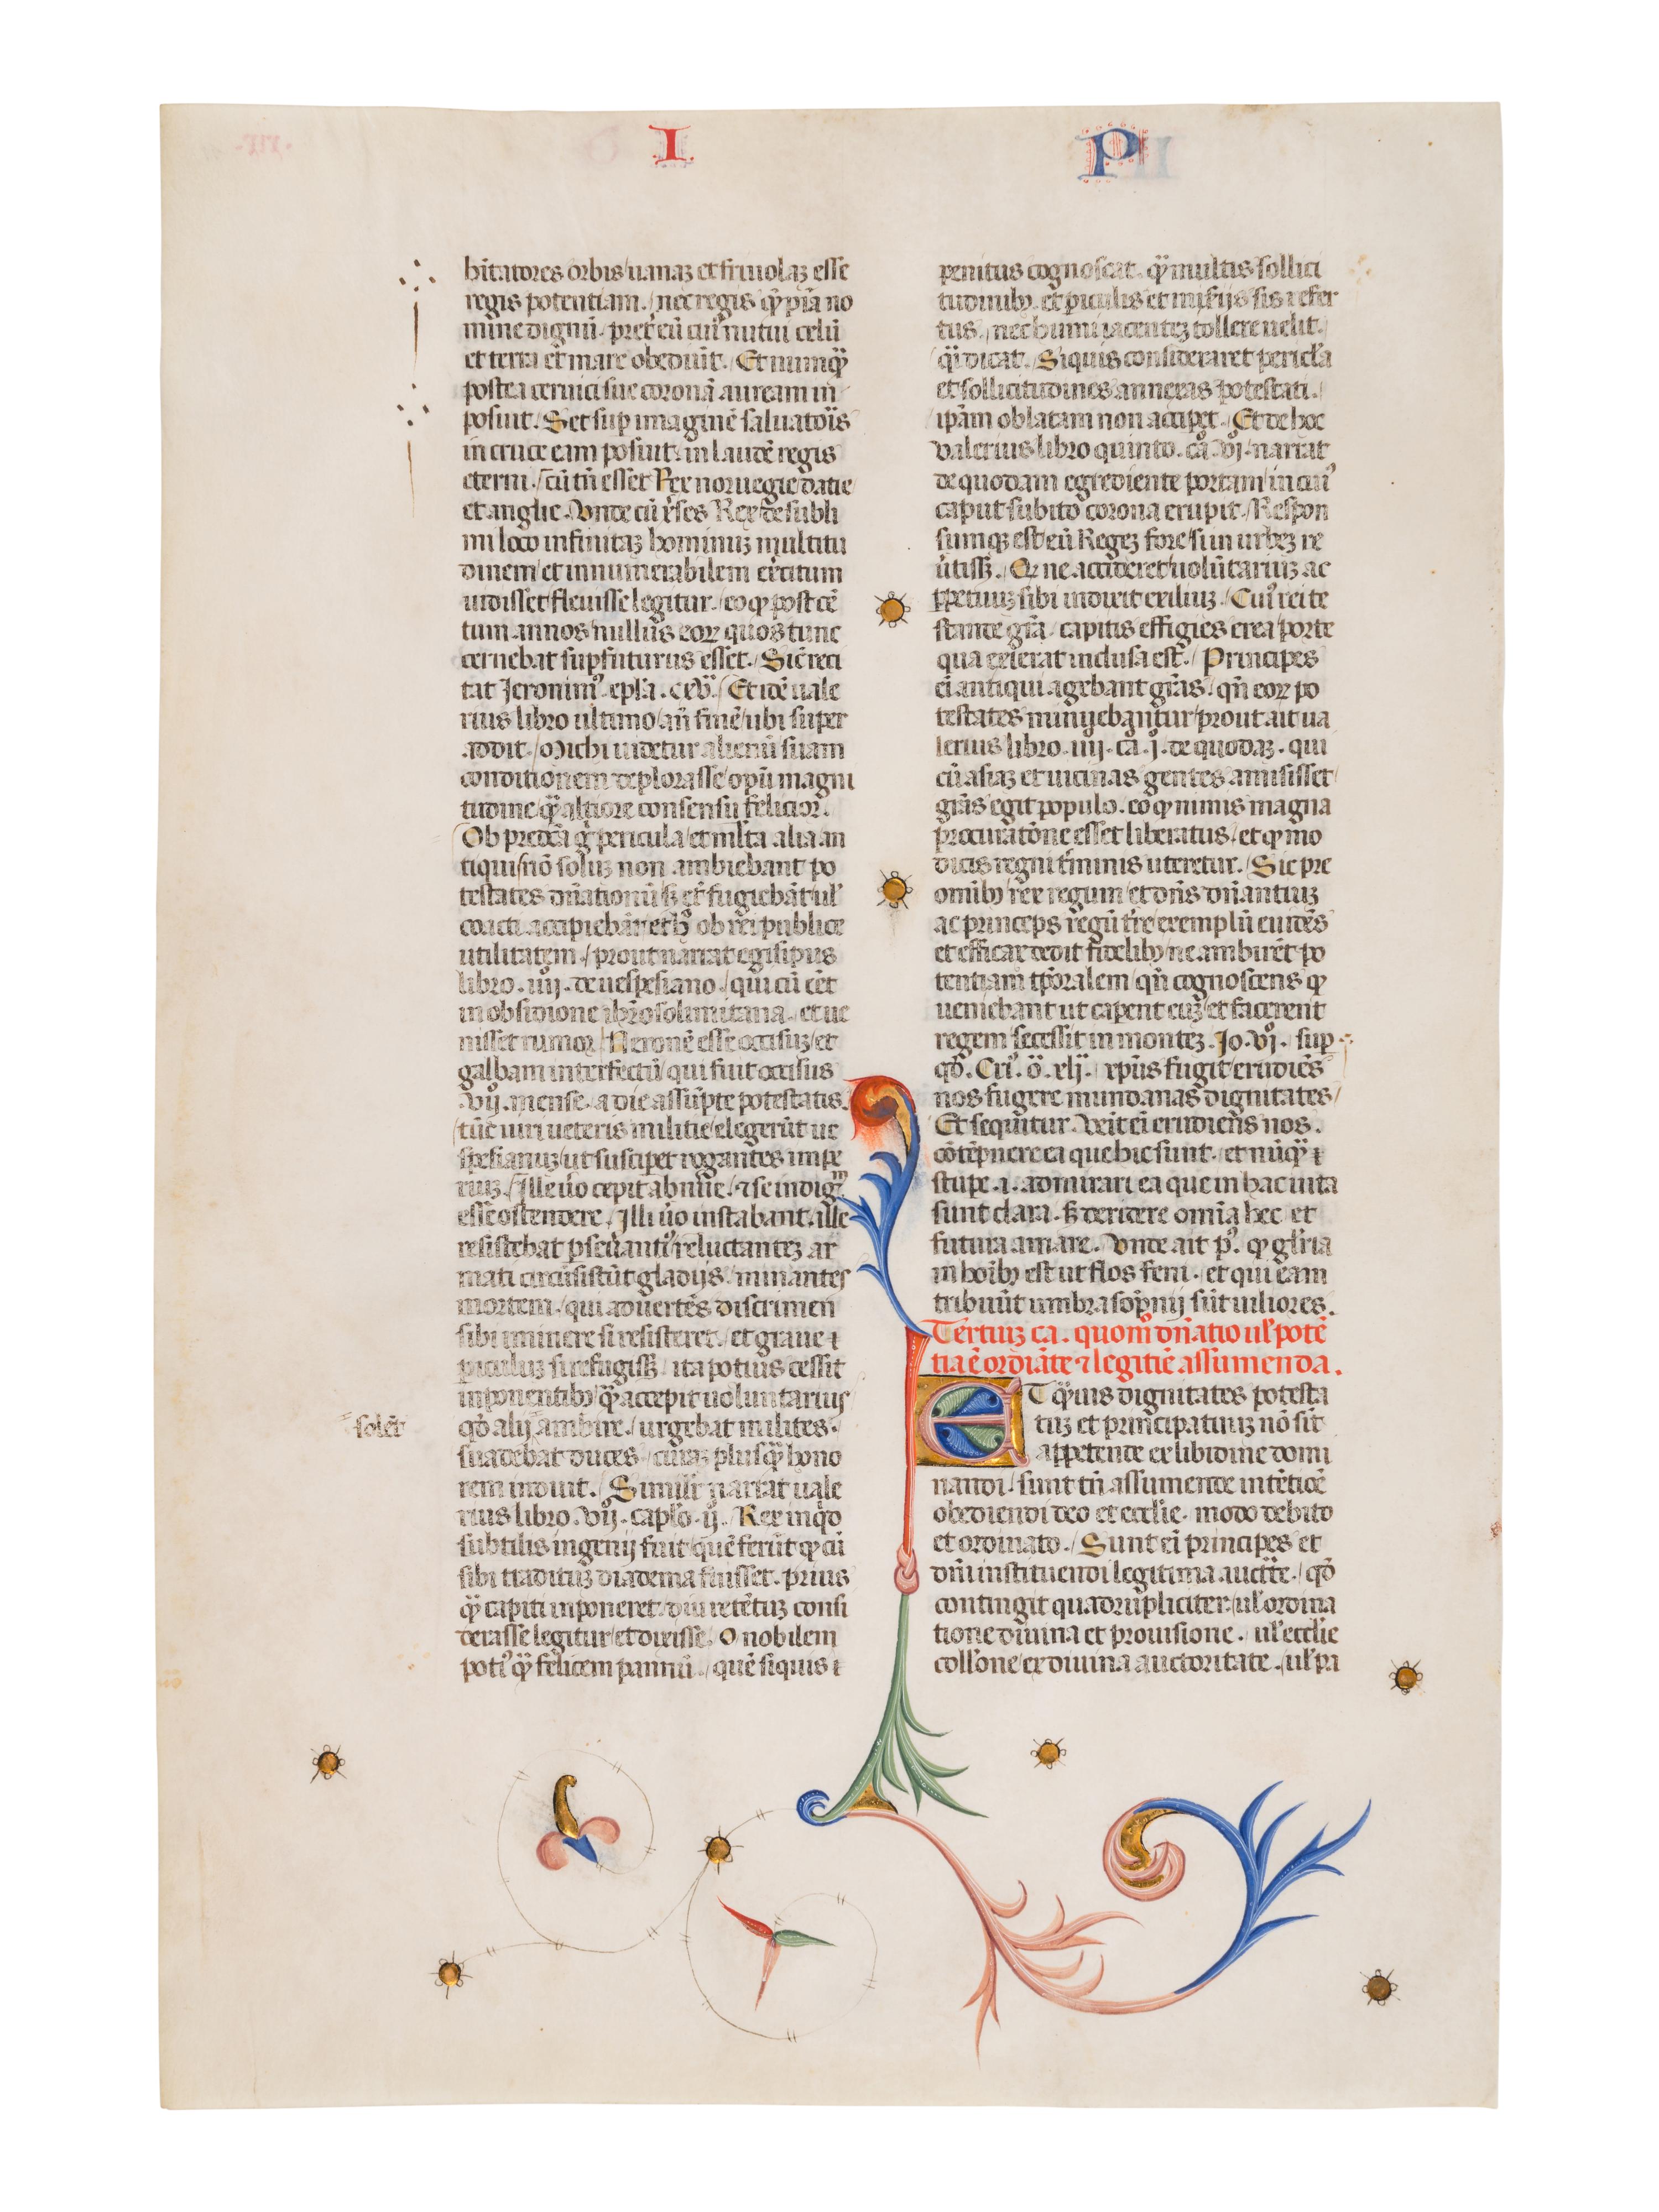 I P
bitatores orbis uanaȝ et friuolaȝ esse
regis potentiam. nec regis qͣ̃ p̃ia no
mine dignũ. pret̃ eũ cui᷒ nutui celũ
et terra et mare obediũt. Et nũnqͣ̃
postea ceruici sue coronã auream in
posuit. Set sup imaginẽ saluatoris
in cruce eam posuit. in laudẽ regis
eterni. cũ tñ esset Rex noruegie datie
et anglie. Vnde cũ xꝰses Rex de subli
mi loco infinitaȝ hominuȝ multitu
dinem et innumerabilem exc̃itum
uidisset fleuisse legitur. eo ꝙ post cẽ
tum annos nullus eoꝝ quos tunc
cernebat supfuturus esset. Sic reci
tat Jeronim᷒ epl̃a. cxv. Et idẽ uale
rius libro ultimo añ finẽ ubi super
addit. Michi uidetur alienũ suam
conditionem deplorasse opũ magni
tudine qͣ̃ altiore consensu felicior.
Ob predc̃a g̊ pericula et ml̃ta alia an
tiqui nõ soluȝ non ambiebant po
testates dñationũ ſȝ et̃ fugiebãt ul̃
coacti accipiebãt et ħ ob rei publice
utilitatem. prout narrat egisipus
libro .iiij. de uespesiano. qui cũ eẽt
in obsidione iherosolimitana. et ue
nisset rumor Neronẽ esse occisuȝ et
galbam interfectũ qui fuit occisus
.vij. mense. a die assũpte potestatis.
tũc uiri ueteris militie elegerũt ue
spesianuȝ ut suscipet rogantes impe
riuȝ. Ille ũo cepit abnũe. ⁊ se indigm̃
esse ostendere. Illi ũo instabant. ille
resistebat pseũanti᷒ reluctanteȝ ar
mati circũsistũt gladijs. minantes
mortem. qui aduertẽs discrimen
sibi iminere si resisteret. et graue ⁊
piculuȝ si refugissȝ ita potius cessit
inponentibȝ qͣ̃ accepit uoluntarius
solẽt
qd̃ alij ambire. urgebat milites.
suadebat duces. curaȝ plusqͣ̃ hono
rem induit. Simil̃r narrat uale
rius libro .vij. caplo .ij. Rex inqͥd
subtilis ingenij fuit quẽ ferũt ꝙ cũ
sibi traditũȝ diadema fuisset. prius
qͣ̃ capiti inponeret diu retẽtuȝ consi
derasse legitur et dixisse. O nobilem
poti᷒ qͣ̃ felicem pannũ. quẽ siquis ⁊
penitus cognoscat. qͣ̃ multis sollici
tudinibȝ et piculis et miẽijs sis refer
tus. nec humi iacenteȝ tollere uelit.
qͣ̃ dicat. Siquis consideraret pericl̃a
et sollicitudines annexas potestati.
ipãm oblatam non accipet. Et de hoc
valerius libro quinto. cã .vj. narrat
de quodam egrediente portam in cui᷒
caput subito corona erupit. Respon
sumqȝ est eũ Regeȝ fore si in urbeȝ re
ũtissȝ. Qr̃ ne accideret uolũtariuȝ ac
ppetuuȝ sibi indixit exiliuȝ. Cui᷒ rei te
stande gr̃a capitis effigies erea porte
qua exierat inclusa est. Principes
eĩ antiqui agebant gr̃as. qñ eoꝝ po
testates minuebantur prout ait ua
lerius libro .iiij. cã .j. de quodaȝ. qui
cũ asiaȝ et uicinas gentes amisisset
gr̃as egit populo. eo ꝙ nimis magna
procuratõne esset liberatus. et ꝙ mo
dicis regni t̃minis uteretur. Sic pre
omibȝ rex regum et dñs dñantiuȝ
ac princeps regũ tr̃e exemplũ euidẽs
et efficax dedit fidelibȝ ne ambirẽt po
tentiam tp̃oralem qñ cognoscens ꝙ
ueniebant ut capent euȝ et facerent
regem secessit in monteȝ. Jo. vj. sup
qd̃. Cri᷒. o᷒. xlj. xp̃us fugit erudiẽs
nos fugere mundanas dignitates
Et sequitur. Venit eĩ erudiens nos.
cõtẽpnere ea que hic sunt. et nũqͣ̃ ⁊
stupe .i. admirari ea que in hac uita
sunt clara. ſȝ deridere omĩa hec et
futura amare. Vnde ait p᷒. ꝙ gl̃ria
in hoĩbȝ est ut flos feni. et qui eam
tribuũt umbra sop̃nij sũt uiliores.
Tertiuȝ ca. quom᷒ dñatio ul̃ potẽ
tia ẽ ordiãte ⁊ legitiẽ assumenda.
ET qͣ̃uis dignitates potesta
tuȝ et principatuuȝ nõ sĩt
appetende ex libidine domi
nandi. sunt tñ assumende intẽtiõe
obediendi deo et eccl̃ie. modo debito
et ordinato. Sunt eĩ principes et
dñi instituendi legitima auctãte. qd̃
contingit quadrupliciter. ul̃ ordina
tione diuina et prouisione. ul̃ eccl̃ie
coll̃one ex diuina auctoritate. ul̃ pa